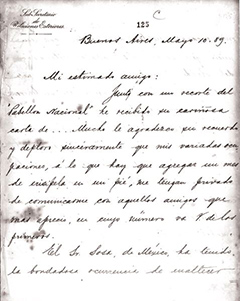 Sub-Secretario
de
Relaciones Exteriores
125
C
Buenos Aires, Mayo 10. 89.
Mi estimado amigo:
Junto con un recorte del
"Pabellon Nacional" he recibido su cariñosa
carta de ... Mucho le agradezco su recuerdo
y deploro sinceramente que mis variadas ocu-
paciones, á lo que hay que agregar un mes
de en un pié, me tengan privado
de comunicarme con aquellos amigos que
mas aprecio, en cuyo número va V. de los
primeros.
El Sr. Sosa, de México, ha tenido
la bondadosa ocurrencia de enaltecer